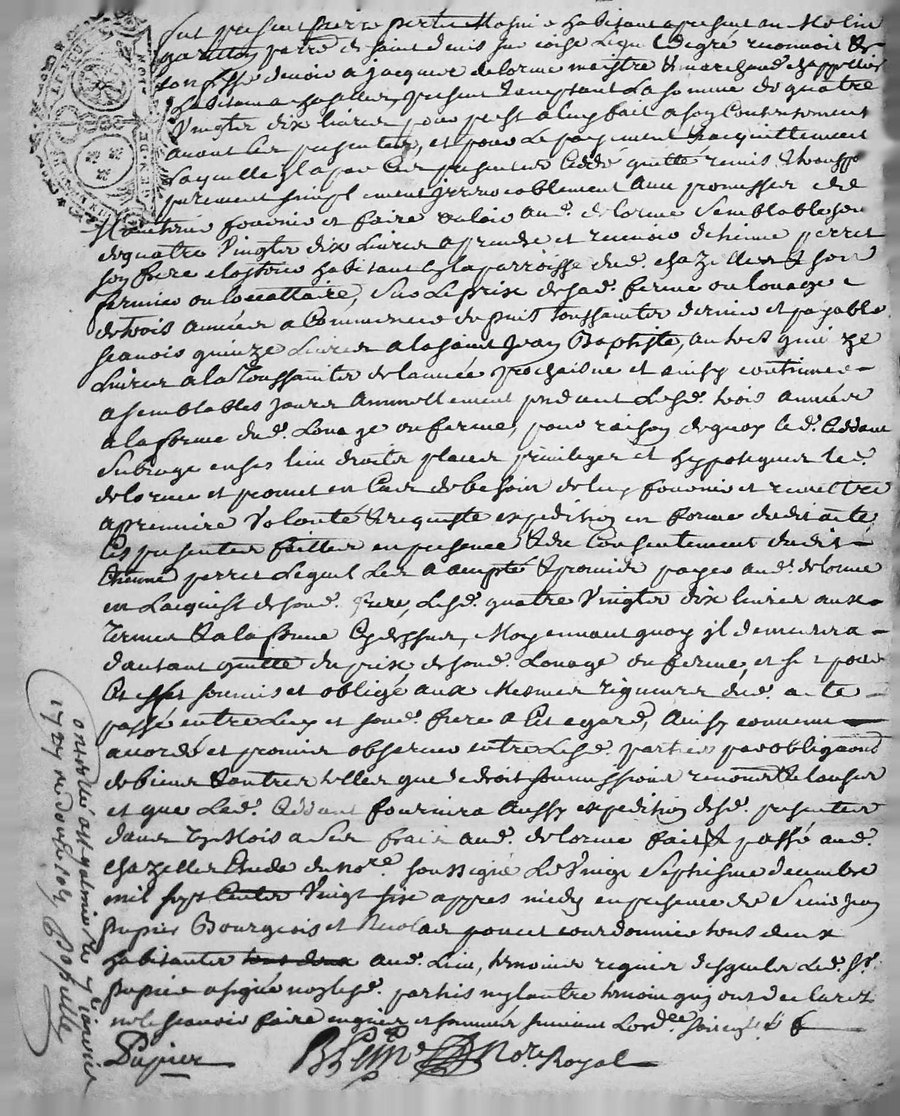 fut present pierre perret Mosnie habitant a present au Molin
gaultoy parre de saint denis sur coise lequel de gré reconnoit &
confesse devoir a jacques delorme maistre & marchand chappellier
habitant a chazelles, present & acceptant la somme de quatre
Vingts dix livres pour prest a luy fait a son contentement
avant les presentes, et pour le payement & acquittement
laquelle il a par ces presentes ceddé quitté remis & transpo
purement simplement irrevocablement avec promesse de
Maintenir fournir et faire valoir aud. delorme semblable so
de quatre Vingts dix livres a prendre et recevoir d'etienne perret
son frere habitant en la parroisse dud. chazelles & son
fermier ou locattaire, sur le prix de sad. ferme ou louage
de trois années a commencer depuis toussaints dernier et payable
scavoir quinze livres a la saint Jean Baptiste, autres quinze
livres a la Toussaints de l'année prochaine et ainsy continuer
a semblables jours annuellement pendant lesd. trois années
a la forme dud. Louage ou ferme, pour raison de quoy led. ceddant
subroge en ses lieu droits places privileges et hyppoteques led.
delorme et promet en cas de besoin de luy fournir et remettre
a premiere Volonté & requiste expedition en forme dudit acte,
Ces presentes faittes en presence & du Consentement dudit
Etienne perret Lequel les a accepté & promis payer aud. delorme
en l'acquist de sond. frere, lesd. quatre Vingts dix livres aux
termes & a la forme cy dessus, Moyennant quoy il demeurera
d'autant quitte du prix de sond. Louage ou ferme, et s'est pour
Cet effet soumis et obligé aux Mesmes rigueurs dud. acte
passé entre Luy et sond. frere a Cet egard, Ainsy convenu
accordé et promis observer entre lesd. parties par obligaond
de biens & autres telles que de droit soumissions renont. & clauses
et que led. ceddant fournira aussy expedition desd. presentes
dans un Mois a ses frais aud. delorme fait & passé aud.
chazelles Etude du nore. soussigné Le Vingt septiesme decembre
mil sept Cents Vingt six appres midy en presence de Sieur Jean
Pupier Bourgeois et Nicolas poncet courdonnier tous deux
habitants aud. Lieu, temoins requis desquels led. Sr.
Pupier a signé non lesd. parties ny l'autre temoin qui ont declarez
ne le scavoir faire enquis et sommés suivant Lord.ce
Pupier
Nore. Royal
Controllé a St galmier le 7 janvier
1727 R douze sols